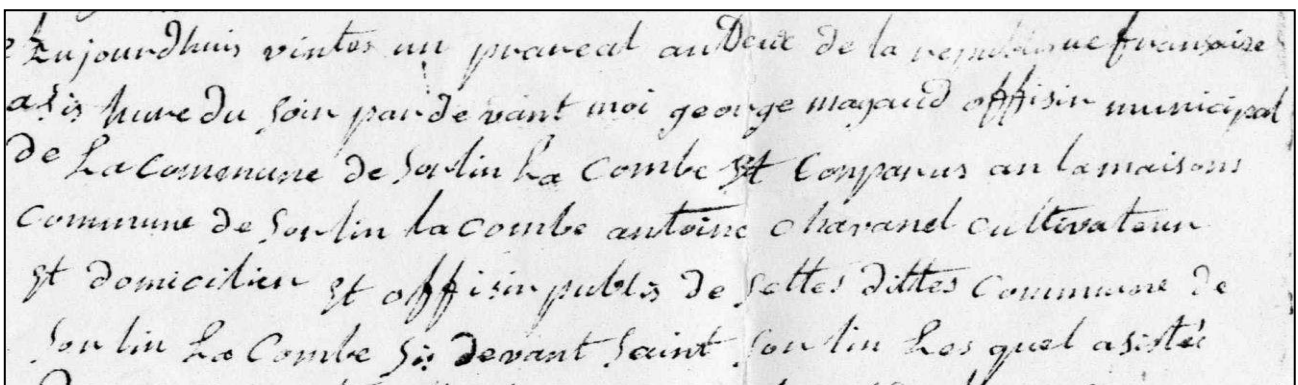 aujourdhuis vintes un prareal an Deux de la republique fransaise
a sis hure du soir par de vant moi george mayaud offisier municipal
de La Commune de Sorlin La Combe et Conparus an la maisons
Commune de Sorlin la combe antoine chavanel cultivateur
et domicilier et offisier publis de settes dittes Commune de
Sorlin La Combe sis devant saint Sorlin Les quel asistés